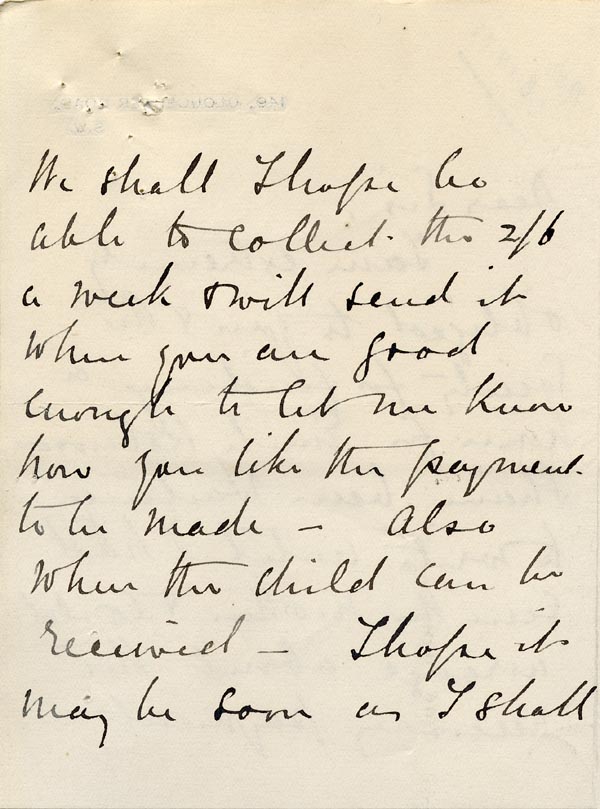 We shall I hope be
able to collect the 2/6
a week & will send it
when you are good
enough to let me know
how you like the payment
to be made – Also
when the child can be
received – I hope it
may be soon as I shall